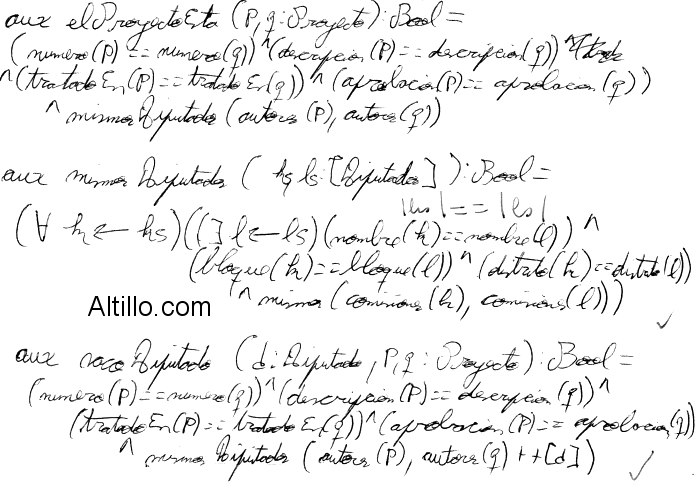 aux elProyectoEsta (P, q: Proyecto): Bool =
(numero(P) == numero(q)) ^ (descripcion(P) == descripcion(q))
^ (tratadoEn(P) == tratadoEn(q)) ^ (aprobacion(P) == aprobacion(q))
^ mismosDiputados (autores(P), autores(q))
aux mismosDiputados (hs, ls: [Diputado]): Bool =
|hs| == |ls|
(∀ h ← hs)((∃ l ← ls)(nombre(h) == nombre(l)) ^
(bloque(h) == bloque(l)) ^ (distrito(h) == distrito(l))
^ mismos(comisiones(h), comisiones(l)))
Altillo.com
aux sacoDiputado (d: Diputado, P, q: Proyecto): Bool =
(numero(P) == numero(q)) ^ (descripcion(P) == descripcion(q)) ^
(tratadoEn(P) == tratadoEn(q)) ^ (aprobacion(P) == aprobacion(q))
^ mismosDiputados (autores(P), autores(q) ++ [d])